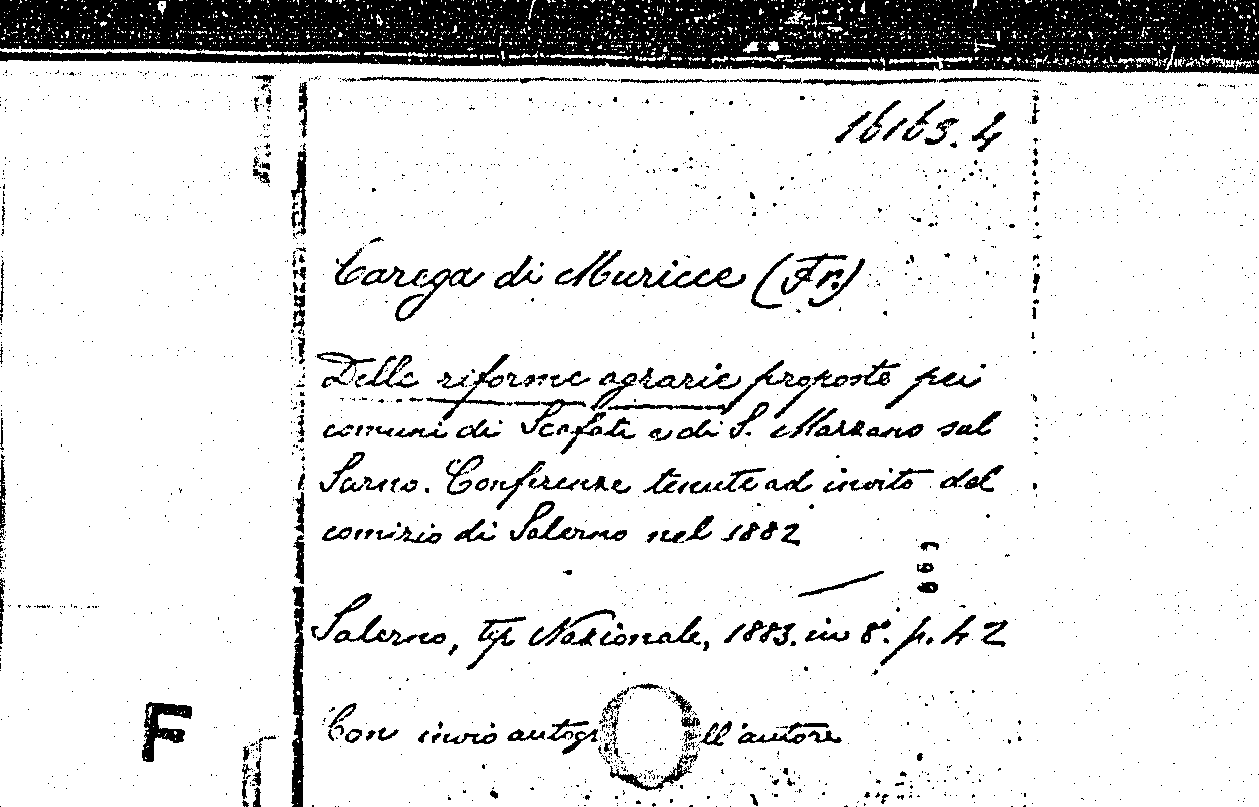 16163.4
Carega di Muricce (Fr.)
Delle riforme agrarie proposte pei
comuni di Scafati e di S. Marzano sul
Sarno. Conferenze tenute ad invito del
comizio di Salerno nel 1882
Salerno, tip Nazionale, 1883. in 8°. p. 42
Con invio autogr ll'autore
F